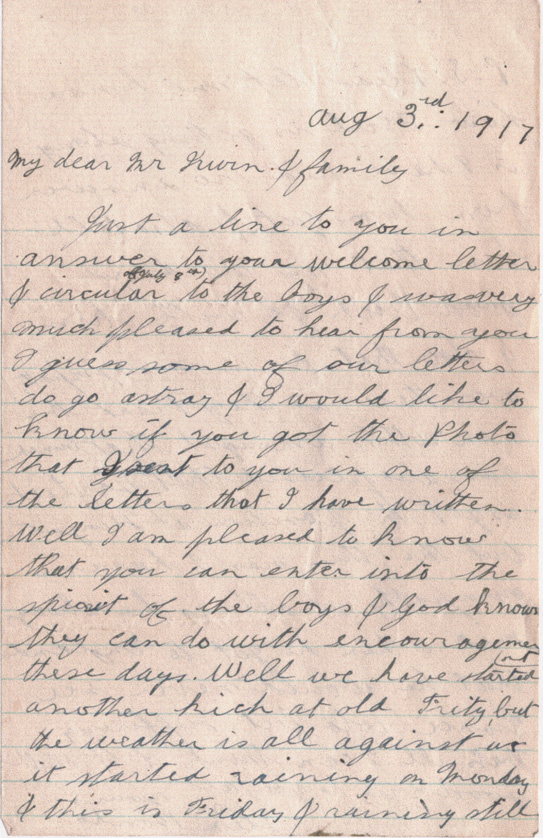 Aug 3rd: 1917
My dear Mr Kirwin & family
Just a line to you in
answer to your welcome letter
(of July 8th)
& circular to the boys & was very
much pleased to hear from you
I guess some of our letters
do go astray & I would like to
know if you got the Photo
that I sent to you in one of
the letters that I have written.
Well I am pleased to know
that you can enter into the
spirit of the boys & God knows
they can do with encouragemen
(nt
these days. Well we have started
another kick at old Fritz but
the weather is all against us
it started raining on Monday
& this is Friday & raining still